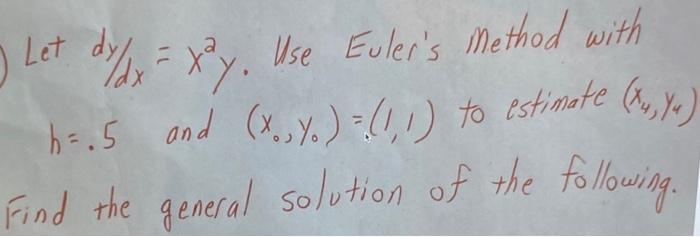 ) Let dy/dx = x²y. Use Euler's Method with
h=.5 and (x₀,y₀)=(1,1) to estimate (x₄,y₄)
Find the general solution of the following.